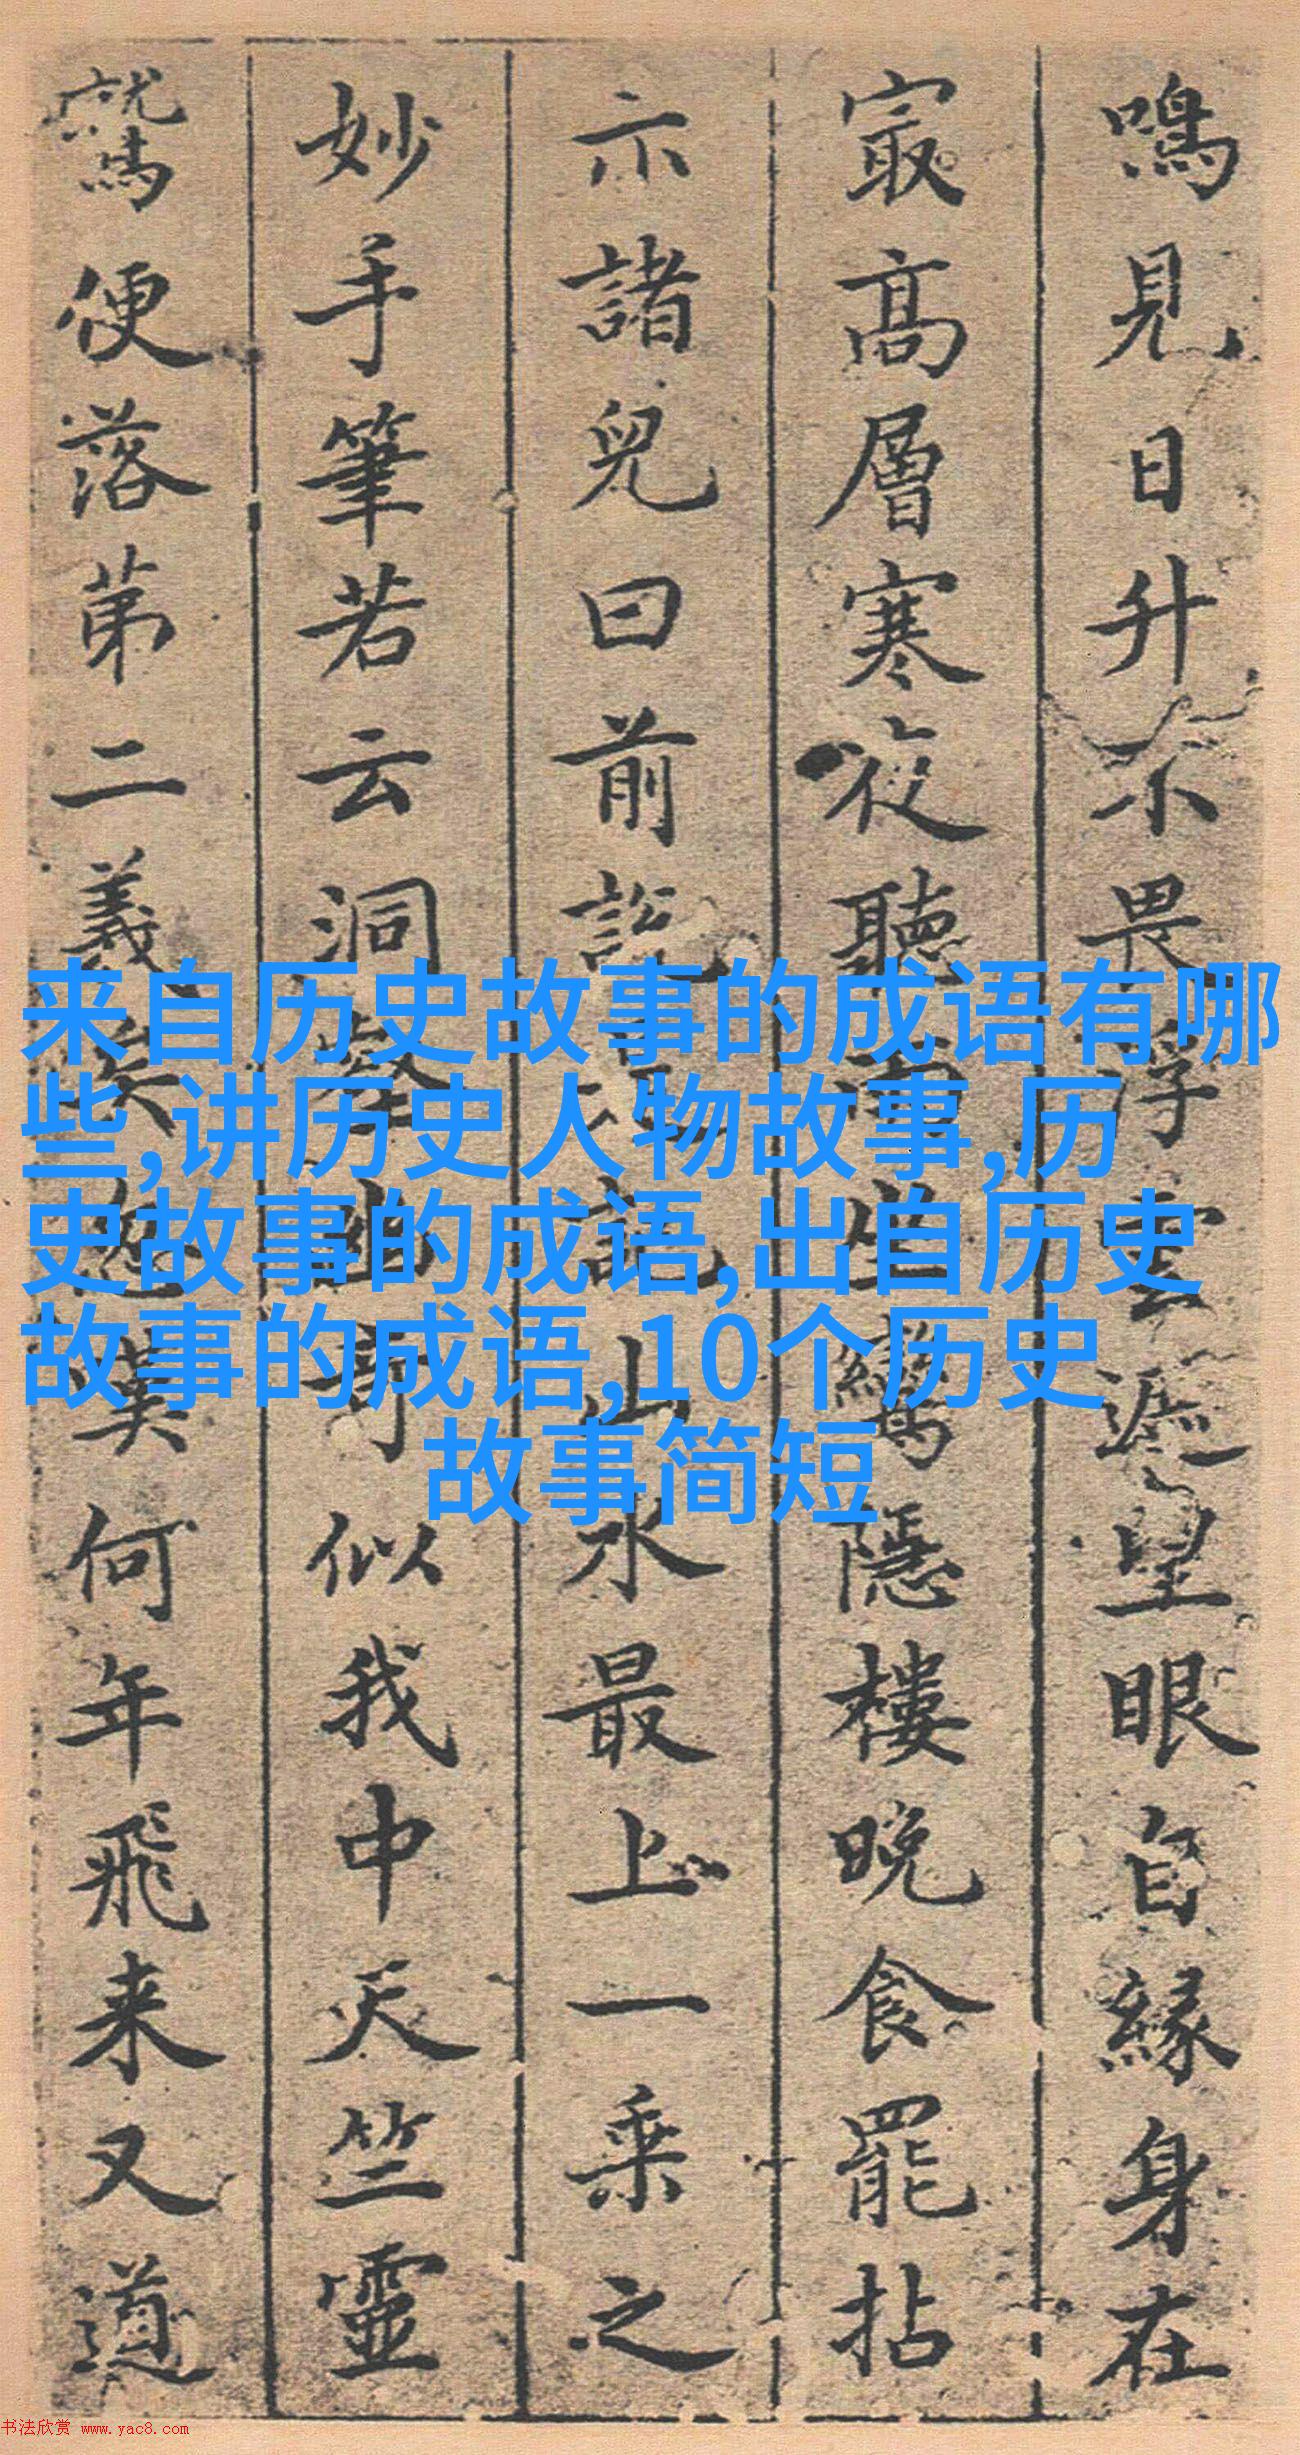 来自历史故事的成语有哪
些,讲历史人物故事,历
史故事的成语,出自历史
故事的成语,10个历史
故事简短
鳴見日升不畏浮雲遮望眼自緣身在
㝡高層寒夜聽坐隱樓晚食罷拈
示諸兒曰前說記山水最上一乘之
妙手筆若云洞壑幽奇似我中天竺靈
鷲便落苐二義矣嘆何年飛来又道
书法欣赏 www.yac8.com